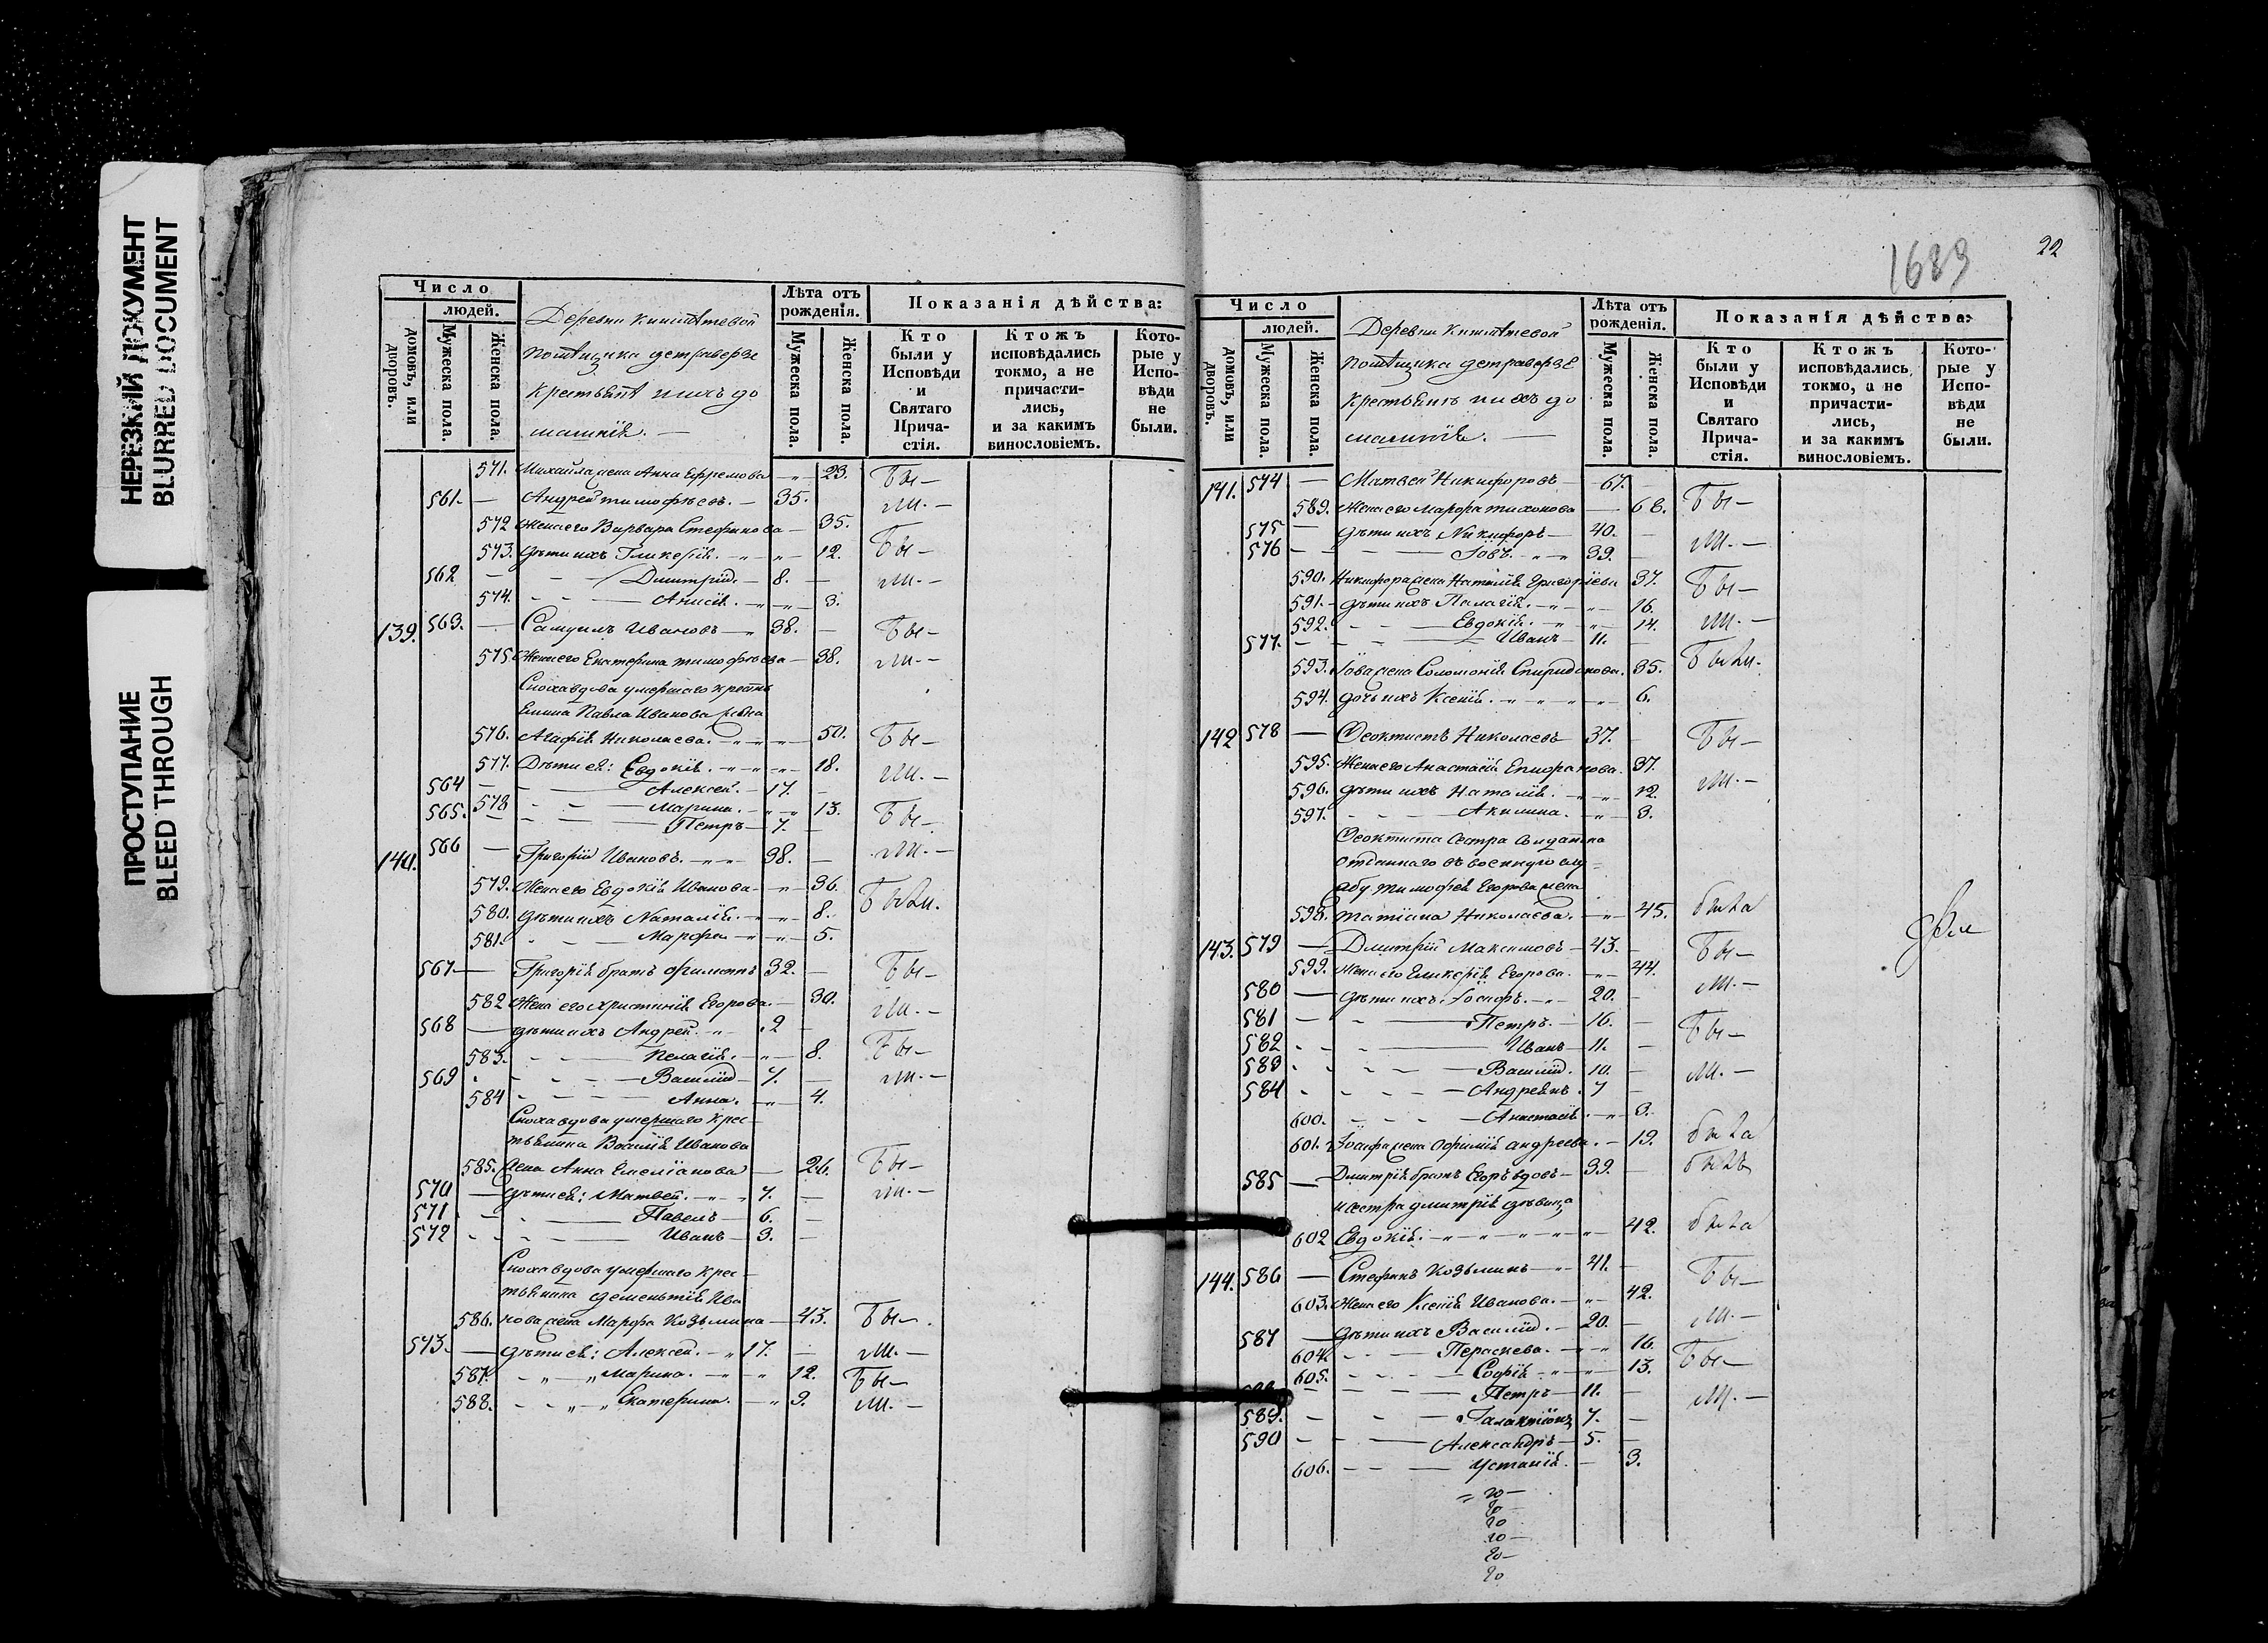 НЕРЕЗКИЙ ДОКУМЕНТ
BLURRED DOCUMENT
ПРОСТУПАНИЕ
BLEED THROUGH
Число
людей.
домовъ, или дворовъ.
Мужеска пола.
Женска пола.
Деревни
помѣщика
крестьянѣ и ихъ до
машнія. —
Лѣта отъ рожденія.
Мужеска пола.
Женска пола.
Показанія дѣйства:
Кто были у Исповѣди и Святаго Прича-стія.
Ктожъ исповѣдались токмо, а не причасти-лись, и за какимъ винословіемъ.
Кото-рые у Испо-вѣди не были.
571. Михайла жена Анна Ефремова — 23. Бы —
561. — Андрей Тимофѣевъ. — 35. — ли. —
572 Жена его Варвара Стефанова — 35.
573. дѣти ихъ Гликерія. — 12. Бы —
562 — Дмитрій. — 8. — ли. —
574. — Анисія. — 3.
139. 563. — Самуилъ Ивановъ — 38. — Бы —
575. Жена его Екатерина Тимофѣева — 38. ли. —
Сноха вдова умершаго крестья
нина Павла Иванова жена
576. Агафія Николаева. — 50. Бы —
577. Дѣти ея: Евдокія. — 18. ли. —
564 — Алексей. — 17. —
578 — Марина. — 13. Бы —
565. — Петръ — 7. —
140. 566 — Григорій Ивановъ. — 38. — ли. —
579. Жена его Евдокія Иванова — 36. Были.
580. дѣти ихъ Наталія. — 8.
581. — Марфа — 5.
567 — Григорія братъ Филиппъ 32. — Бы —
582 Жена его Христинія Егорова. — 30. ли. —
568 — дѣти ихъ Андрей. — 2 —
583. — Пелагія. — 8. Бы —
569 — Василій — 7. — ли. —
584 — Анна. — 4.
Сноха вдова умершаго крес-
тьянина Василія Иванова
585. жена Анна Емеліанова — 26. Бы —
570 — дѣти ея: Матвей. — 7. — ли. —
571 — Павелъ — 6. —
572 — Иванъ — 3. —
Сноха вдова умершаго крес-
тьянина Дементія Ива
586. нова жена Марфа Козьмина — 43. Бы —
573. — дѣти ея: Алексей. — 17. — ли. —
587. — Марина. — 12. Бы —
588. — Екатерина. — 9. ли. —
1689
22
Число
людей.
домовъ, или дворовъ.
Мужеска пола.
Женска пола.
Деревни
помѣщика
крестьянъ и ихъ до
машнія. —
Лѣта отъ рожденія.
Мужеска пола.
Женска пола.
Показанія дѣйства:
Кто были у Исповѣди и Святаго Прича-стія.
Ктожъ исповѣдались токмо, а не причасти-лись, и за какимъ винословіемъ.
Кото-рые у Испо-вѣди не были.
141. 574 — Матвей Никифоровъ — 67. —
589. Жена его Марфа Тихонова — 68. Бы —
575 — дѣти ихъ Никифоръ — 40. —
576 — Іовъ. — 39. — ли. —
590. Никифора жена Наталія Григорьева 37. Бы —
591. — дѣти ихъ Палагія. — 16.
592. — Евдокія. — 14. ли. —
577. — Иванъ — 11.
593. Іова жена Соломонія Спиридонова. 35. Были.
594. дочь ихъ Ксенія. — 6.
142 578 — Ѳеоктистъ Николаевъ — 37. — Бы —
595. Жена его Анастасія Епифанова. 37.
596. дѣти ихъ Наталія. — 12. ли. —
597. — Акилина. — 3.
Ѳеоктиста сестра солдатка
отданнаго въ военную слу-
жбу Тимофея Егорова жена
598. Татіана Николаева. — 45. была
143. 579 — Дмитрій Максимовъ — 43. — Бы —
599. Жена его Гликерія Егорова. — 44.
580 — дѣти ихъ: Іосифъ. — 20. — ли. —
581 — Петръ. — 16. —
582 — Иванъ — 11. — Бы —
583 — Василій. 10. —
584 — Андреянъ. 7 — ли. —
600. — Анастасія. — 3.
601. Іосифа жена Офимія Андреева. — 19. была
585 — Дмитрія братъ Егоръ вдовъ — 39. — былъ
и сестра Дмитрія дѣвица
602 Евдокія. — 42. была
144. 586 — Стефанъ Козьминъ — 41. — Бы —
603. Жена его Ксенія Иванова. — 42.
587 — дѣти ихъ Василій. — 20. — ли. —
604. — Пераскева. — 16.
605. — Софія — 13. Бы —
— Петръ — 11. —
589. — Галактіонъ 7. — ли. —
590 — Александръ — 5. —
606. — Устинія. — 3.